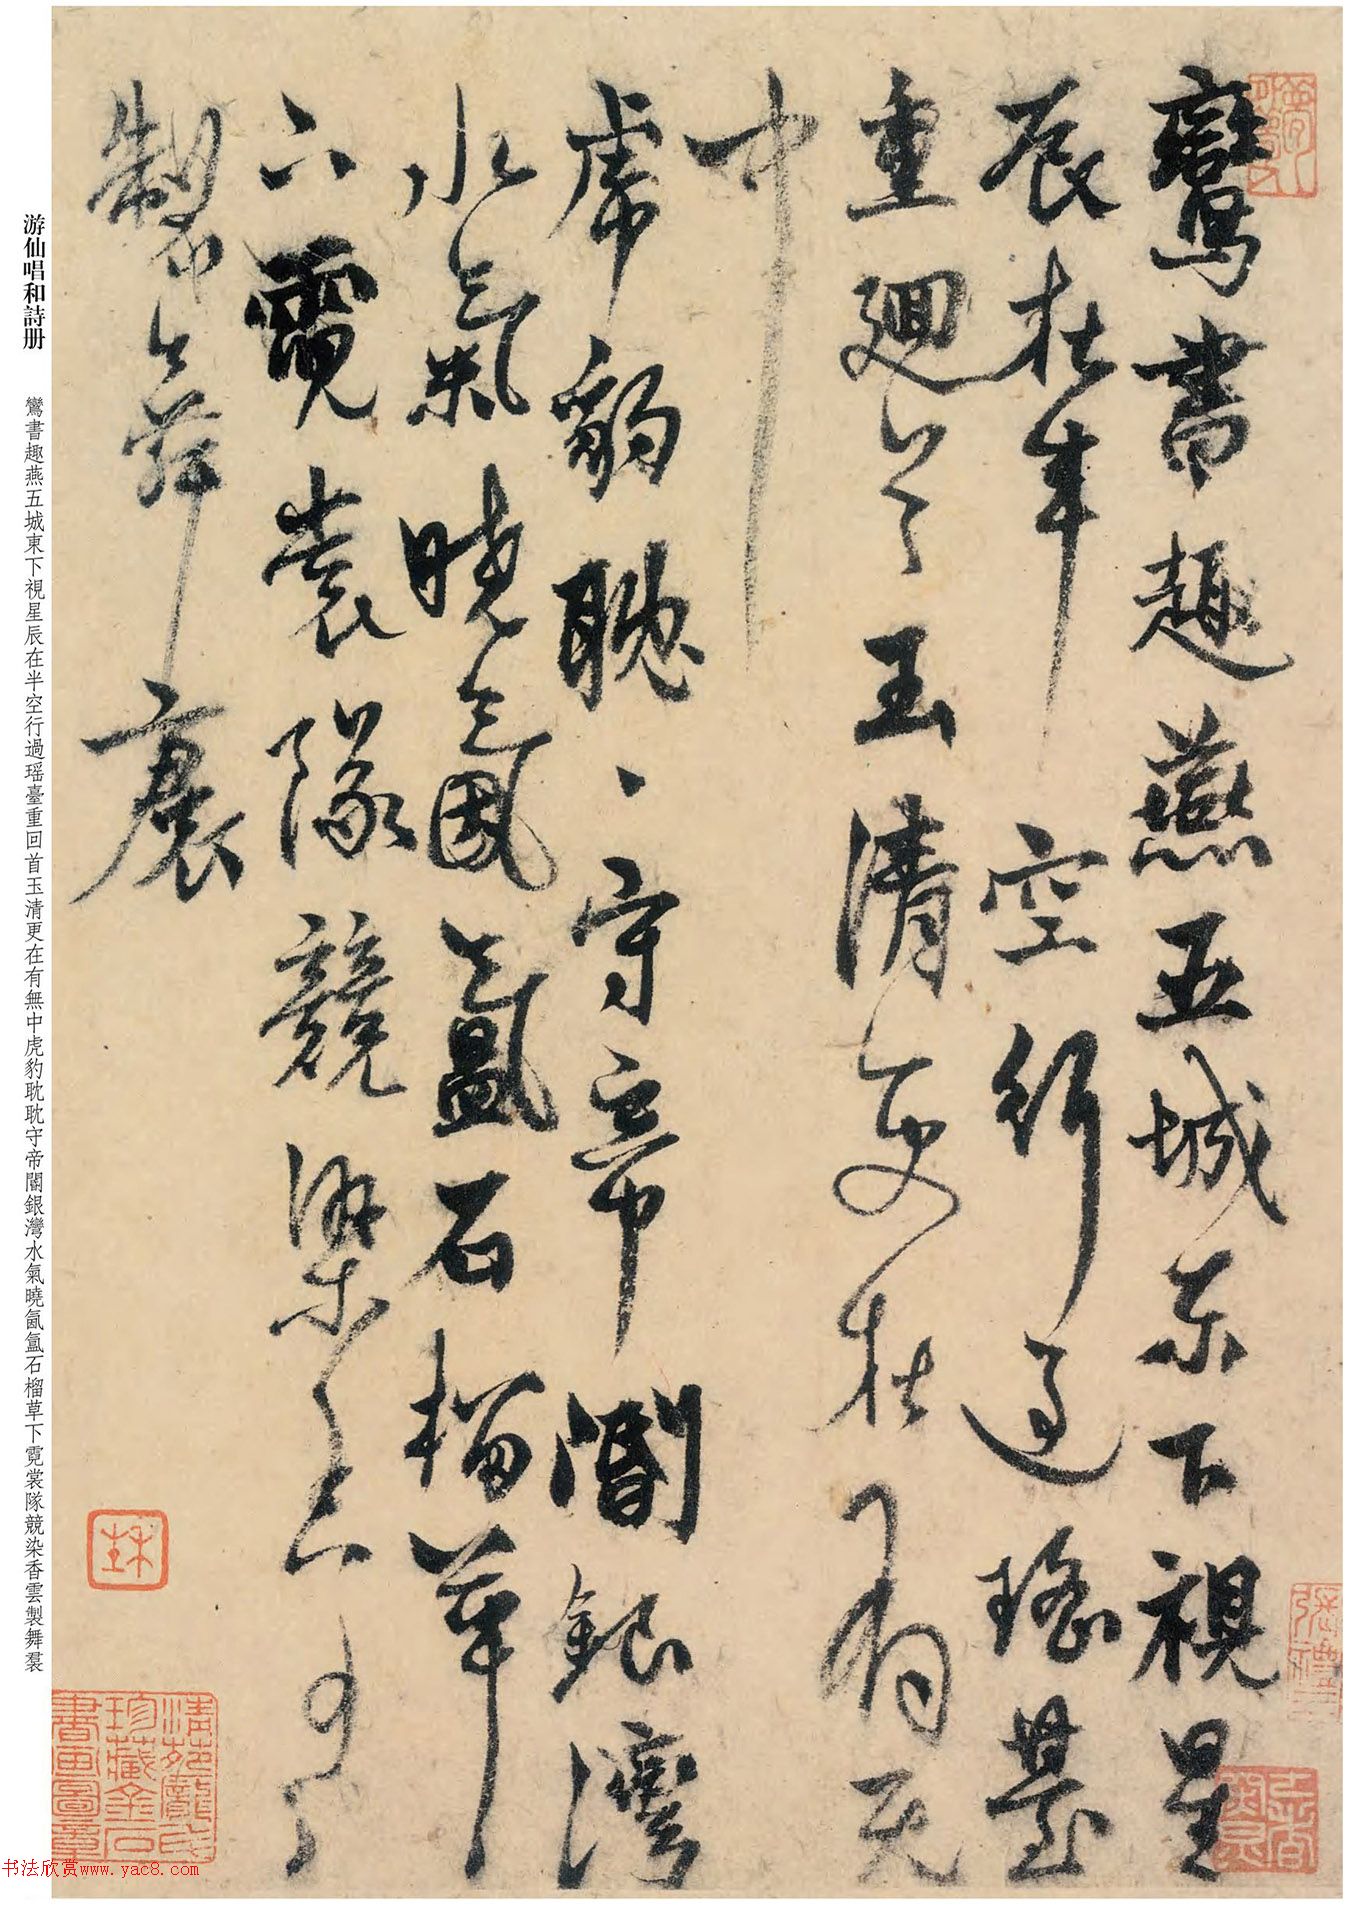 鸞書趣燕五城東下視星
辰在半空行過瑤臺
重迴首玉清更在有无
中
虎豹耽〻守帝閽銀灣
水氣曉氤氳石榴華
下霓裳隊競染香雲
製舞裠
游仙唱和詩册
鸞書趣燕五城東下視星辰在半空行過瑶臺重回首玉清更在有無中虎豹耽耽守帝閽銀灣水氣曉氤氳石榴草下霓裳隊競染香雲製舞裠
清苑龍氏
珍藏金石
書畫圖章
书法欣赏www.yac8.com